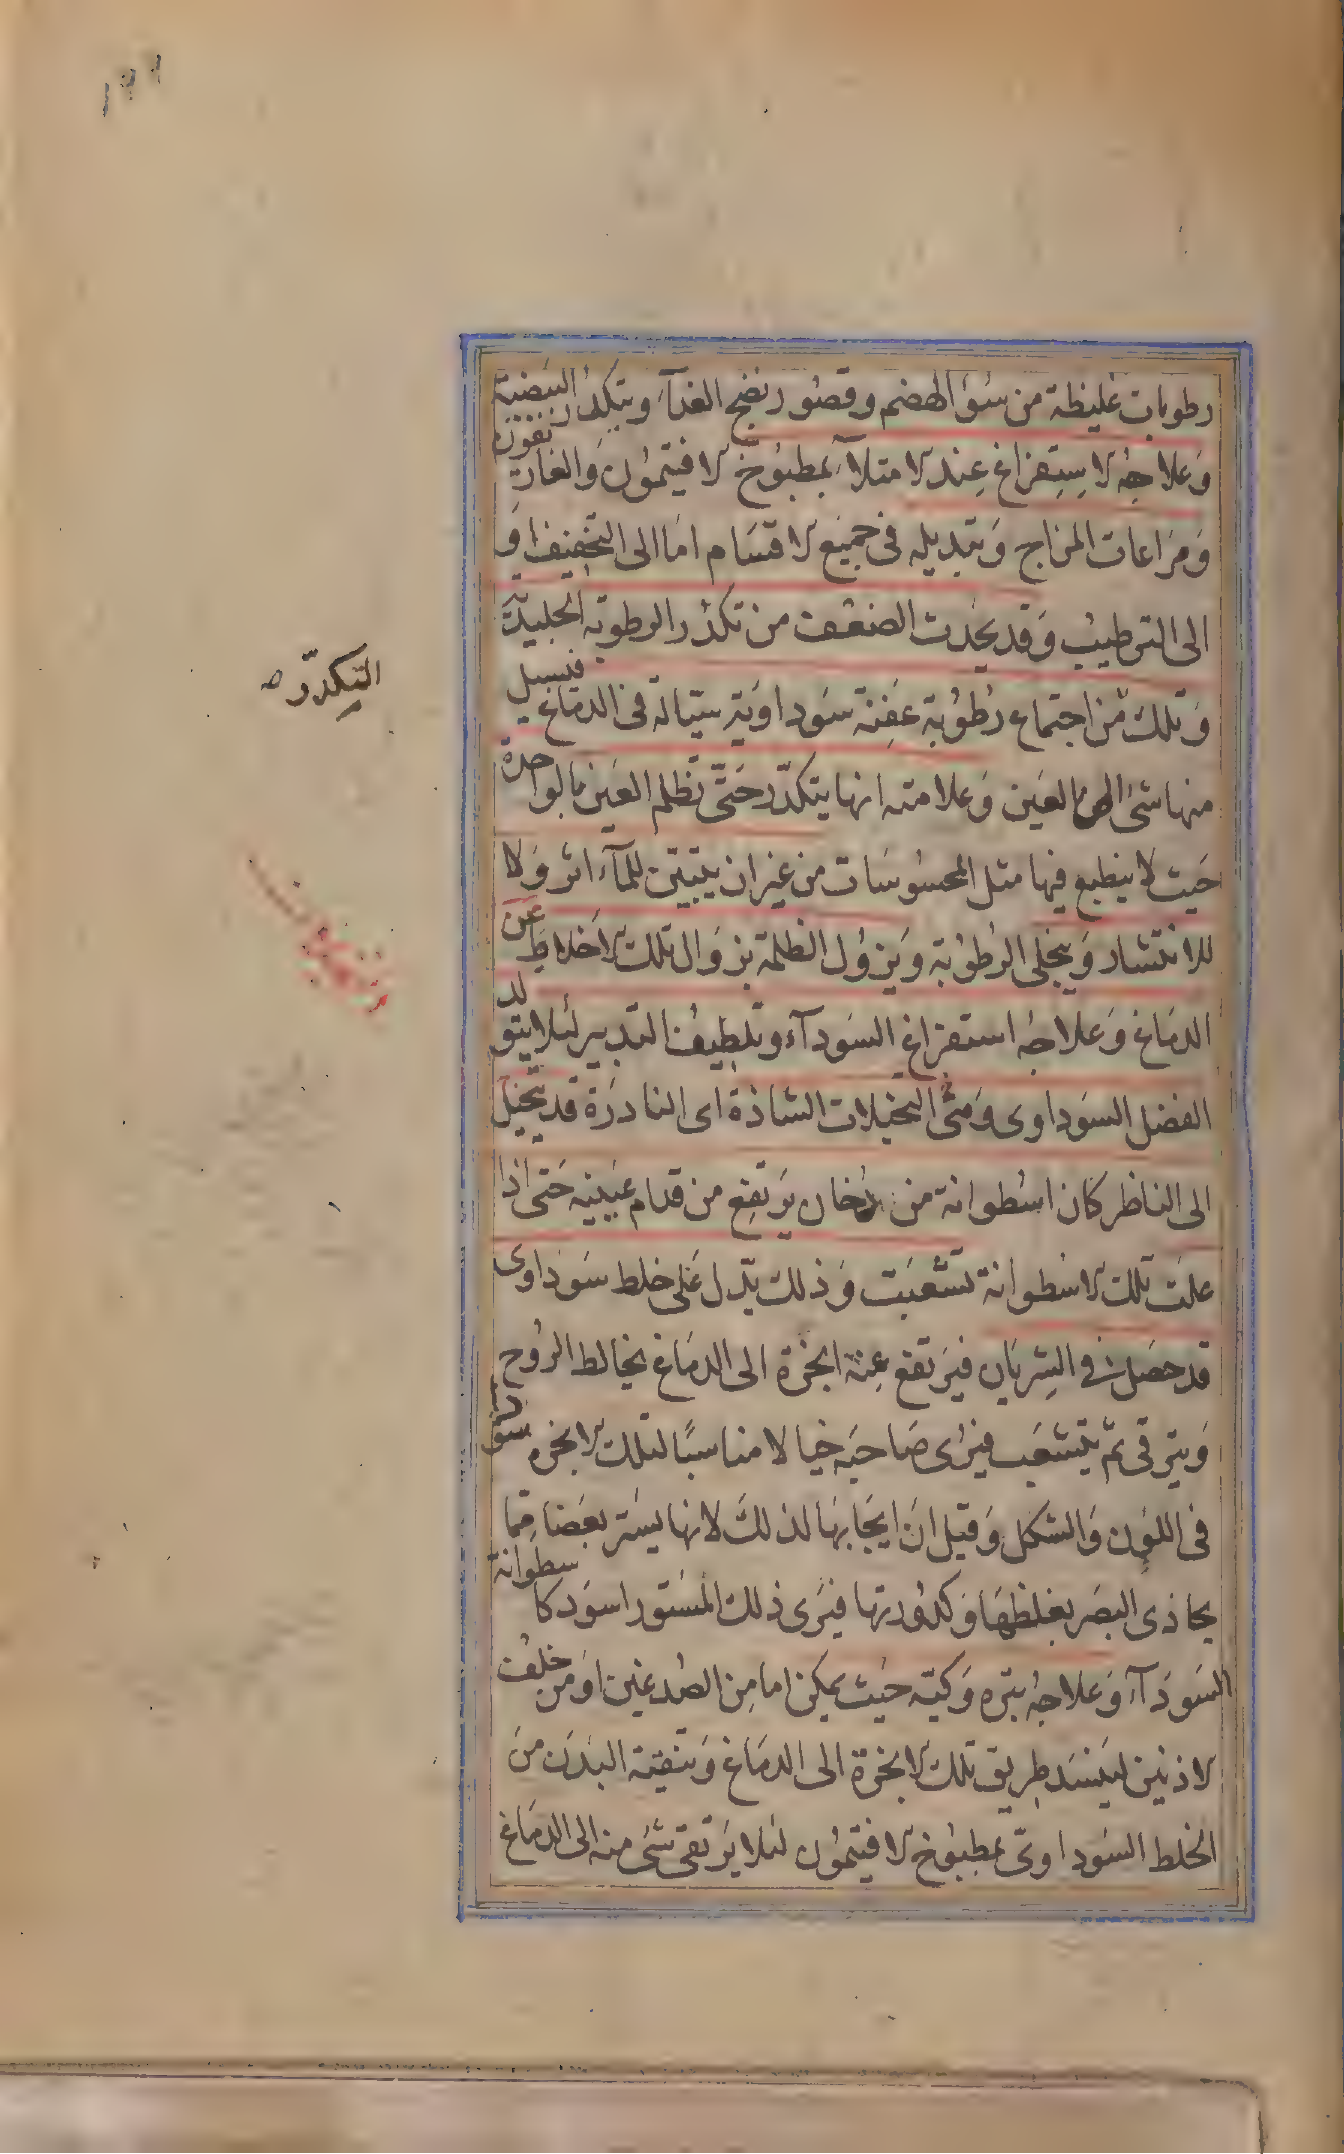 ١٩٩
رطوبات غليظة من سوء الهضم وقصور نضج الغذآء ويتكدر البيضية
وعلاجه الاستفراغ عند الامتلآء بمطبوخ الافتيمون والغاريقون
ومراعات المزاج وتبديله فى جميع الاقسام اما الى التجفيف او
الى الترطيب وقد يحدث الضعف من تكدر الرطوبة الجليدية
وتلك من اجتماع رطوبة عفنة سوداوية سيالة فى الدماغ فيسيل
منها شئ الى العين وعلامته انها يتكدر حتى تظلم العين بالواحدة
حيث لا ينطبع فيها مثل المحسوسات من غير ان يتبين للمآء اثر ولا
للانتشار وينجلى الرطوبة ويزول الظلمة بزوال تلك الاخلاط عن
الدماغ وعلاجه استفراغ السودآء وتلطيف التدبير لئلا يتولد
الفضل السوداوى ومن التخيلات الشاذة اى النادرة قد يتخيل
الى الناظر كان اسطوانة من دخان يرتفع من قدام عينيه حتى اذا
علت تلك الاسطوانة تشعبت وذلك يدل على خلط سوداوى
قد حصل فى الشريان فيرتفع عنه ابخرة الى الدماغ يخالط الروح
ويترقى ثم يتشعب فيرى صاحبه خيالا مناسبا لتلك الابخره
فى اللون والشكل وقيل ان ايجابها لذلك لانها يستر بعضا مما
يحاذى البصر بغلظها وكدورتها فيرى ذلك المستور اسود كاسطوانة
السودآء وعلاجه بتره وكيه حيث يمكن اما من الصدغين او من خلف
الاذنين لينسد طريق تلك الابخرة الى الدماغ وتنقية البدن من
الخلط السوداوى بمطبوخ الافتيمون لئلا يرتقى شئ منه الى الدماغ
التكدّر